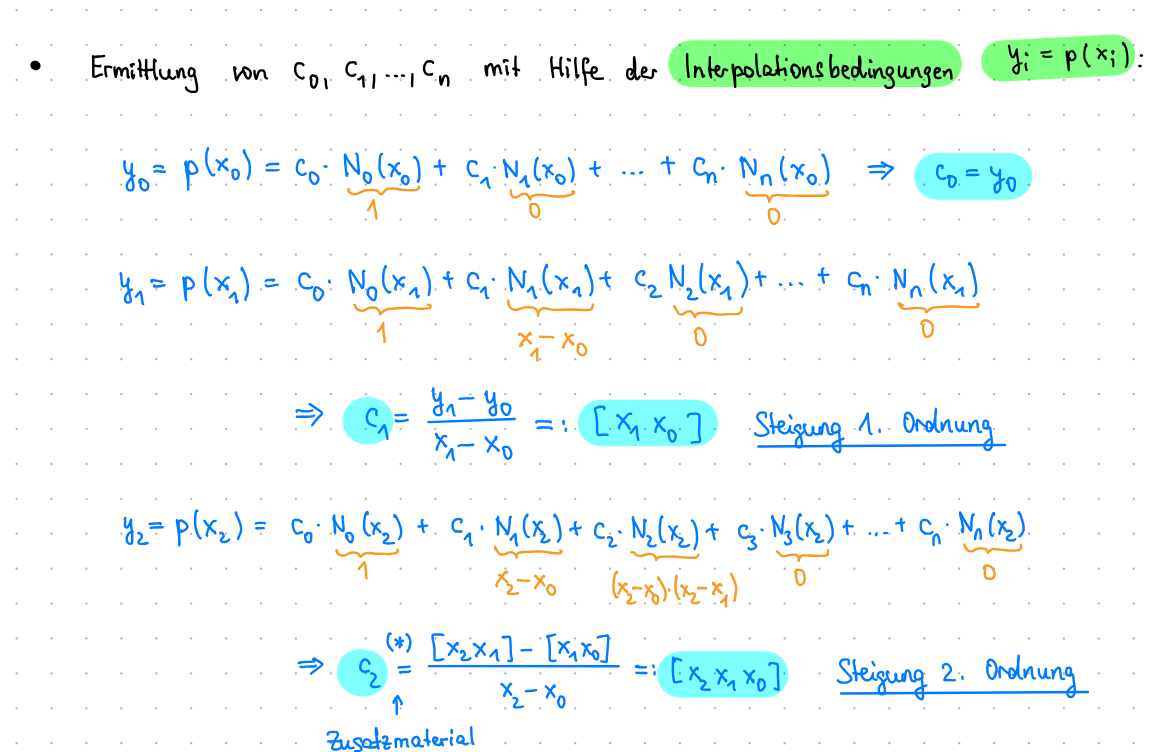 • Ermittlung von c₀, c₁, ..., cₙ mit Hilfe der Interpolationsbedingungen yᵢ = p(xᵢ):
y₀ = p(x₀) = c₀· N₀(x₀) + c₁· N₁(x₀) + ... + cₙ· Nₙ(x₀) ⇒ c₀ = y₀
1 0 0
y₁ = p(x₁) = c₀· N₀(x₁) + c₁· N₁(x₁) + c₂ N₂(x₁) + ... + cₙ· Nₙ(x₁)
1 x₁ − x₀ 0 0
⇒ c₁ = (y₁ − y₀)/(x₁ − x₀) =: [x₁ x₀] Steigung 1. Ordnung
y₂ = p(x₂) = c₀· N₀(x₂) + c₁· N₁(x₂) + c₂· N₂(x₂) + c₃· N₃(x₂) + ... + cₙ· Nₙ(x₂)
1 x₂ − x₀ (x₂ − x₀)·(x₂ − x₁) 0 0
⇒ c₂ (*) = ([x₂ x₁] − [x₁ x₀])/(x₂ − x₀) =: [x₂ x₁ x₀] Steigung 2. Ordnung
↑
Zusatzmaterial